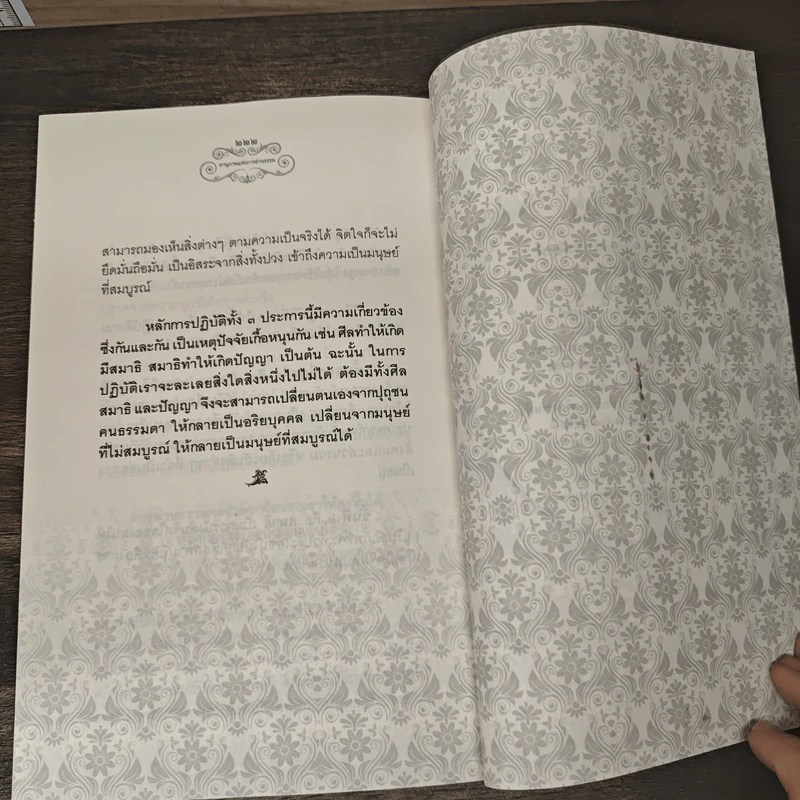 ๒๒๒
อานุภาพแห่งการอ่านธรรม
สามารถมองเห็นสิ่งต่างๆ ตามความเป็นจริงได้ จิตใจก็จะไม่
ยึดมั่นถือมั่น เป็นอิสระจากสิ่งทั้งปวง เข้าถึงความเป็นมนุษย์
ที่สมบูรณ์
หลักการปฏิบัติทั้ง ๓ ประการนี้มีความเกี่ยวข้อง
ซึ่งกันและกัน เป็นเหตุปัจจัยเกื้อหนุนกัน เช่น ศีลทำให้เกิด
มีสมาธิ สมาธิทำให้เกิดปัญญา เป็นต้น ฉะนั้น ในการ
ปฏิบัติเราจะละเลยสิ่งใดสิ่งหนึ่งไปไม่ได้ ต้องมีทั้งศีล
สมาธิ และปัญญา จึงจะสามารถเปลี่ยนตนเองจากปุถุชน
คนธรรมดา ให้กลายเป็นอริยบุคคล เปลี่ยนจากมนุษย์
ที่ไม่สมบูรณ์ ให้กลายเป็นมนุษย์ที่สมบูรณ์ได้